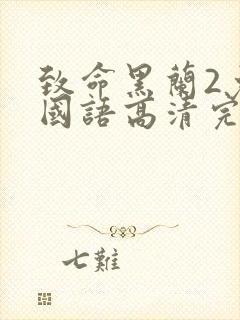 致命黑蘭2
國語高清完
七難